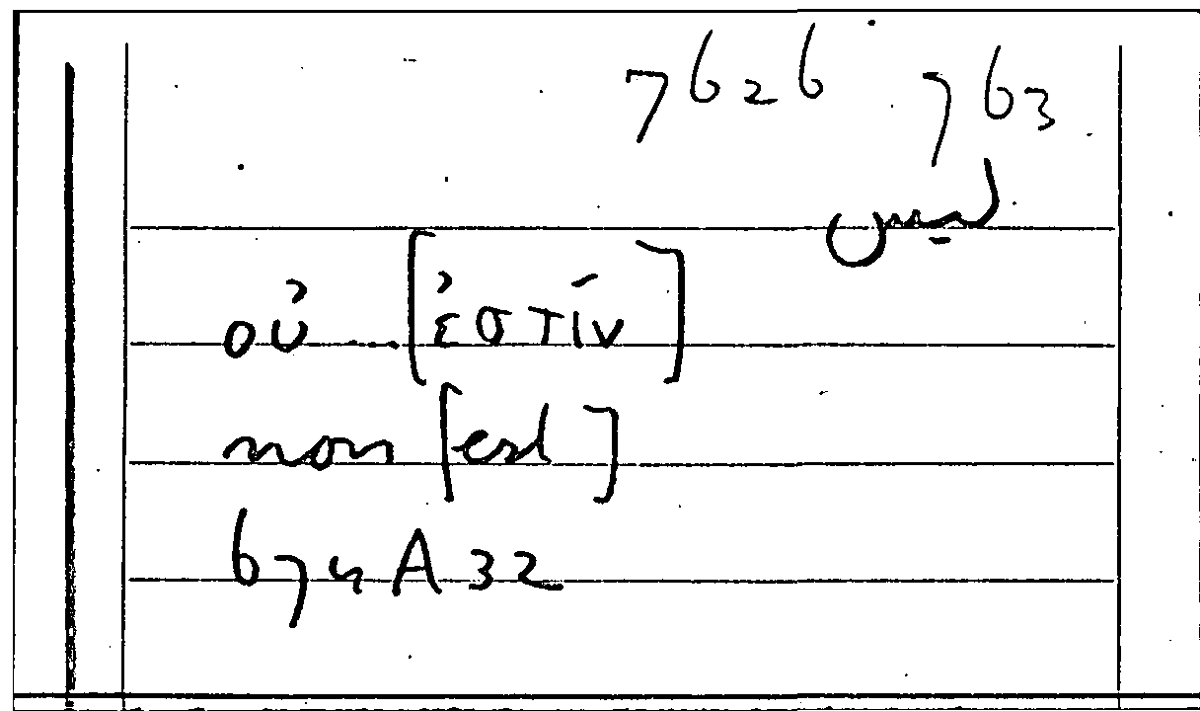 7626 763
ليس
οὐ....[ἐστίν]
non [est]
674A32